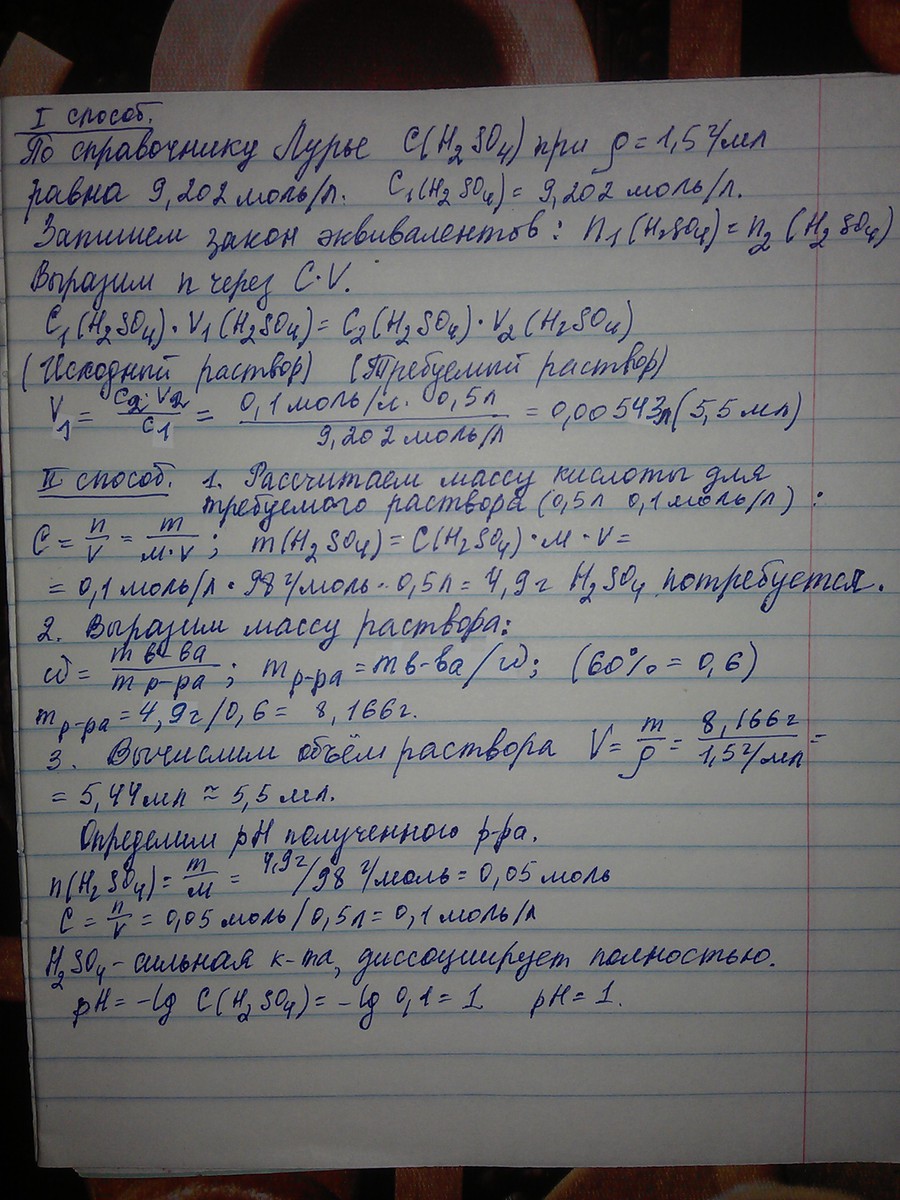 I способ.
По справочнику Лурье C(H₂SO₄) при ρ = 1,5 г/мл
равна 9,202 моль/л. C₁(H₂SO₄) = 9,202 моль/л.
Запишем закон эквивалентов: n₁(H₂SO₄) = n₂(H₂SO₄)
Выразим n через C·V.
C₁(H₂SO₄)·V₁(H₂SO₄) = C₂(H₂SO₄)·V₂(H₂SO₄)
(Исходный раствор) (Требуемый раствор)
V₁ = C₂·V₂/C₁ = 0,1 моль/л · 0,5л/9,202 моль/л = 0,00543л (5,5 мл)
II способ. 1. Рассчитаем массу кислоты для
требуемого раствора (0,5л 0,1 моль/л):
C = n/V = m/M·V; m(H₂SO₄) = C(H₂SO₄)·M·V =
= 0,1 моль/л · 98 г/моль · 0,5л = 4,9 г H₂SO₄ потребуется.
2. Выразим массу раствора:
ω = m в-ва/m р-ра; m р-ра = m в-ва/ω; (60% = 0,6)
m р-ра = 4,9г/0,6 = 8,166г.
3. Вычислим объём раствора V = m/ρ = 8,166г/1,5г/мл =
= 5,44мл ≈ 5,5 мл.
Определим pH полученного р-ра.
n(H₂SO₄) = m/M = 4,9г/98 г/моль = 0,05 моль
C = n/V = 0,05 моль/0,5л = 0,1 моль/л
H₂SO₄ - сильная к-та, диссоциирует полностью.
pH = -lg C(H₂SO₄) = -lg 0,1 = 1 pH = 1.